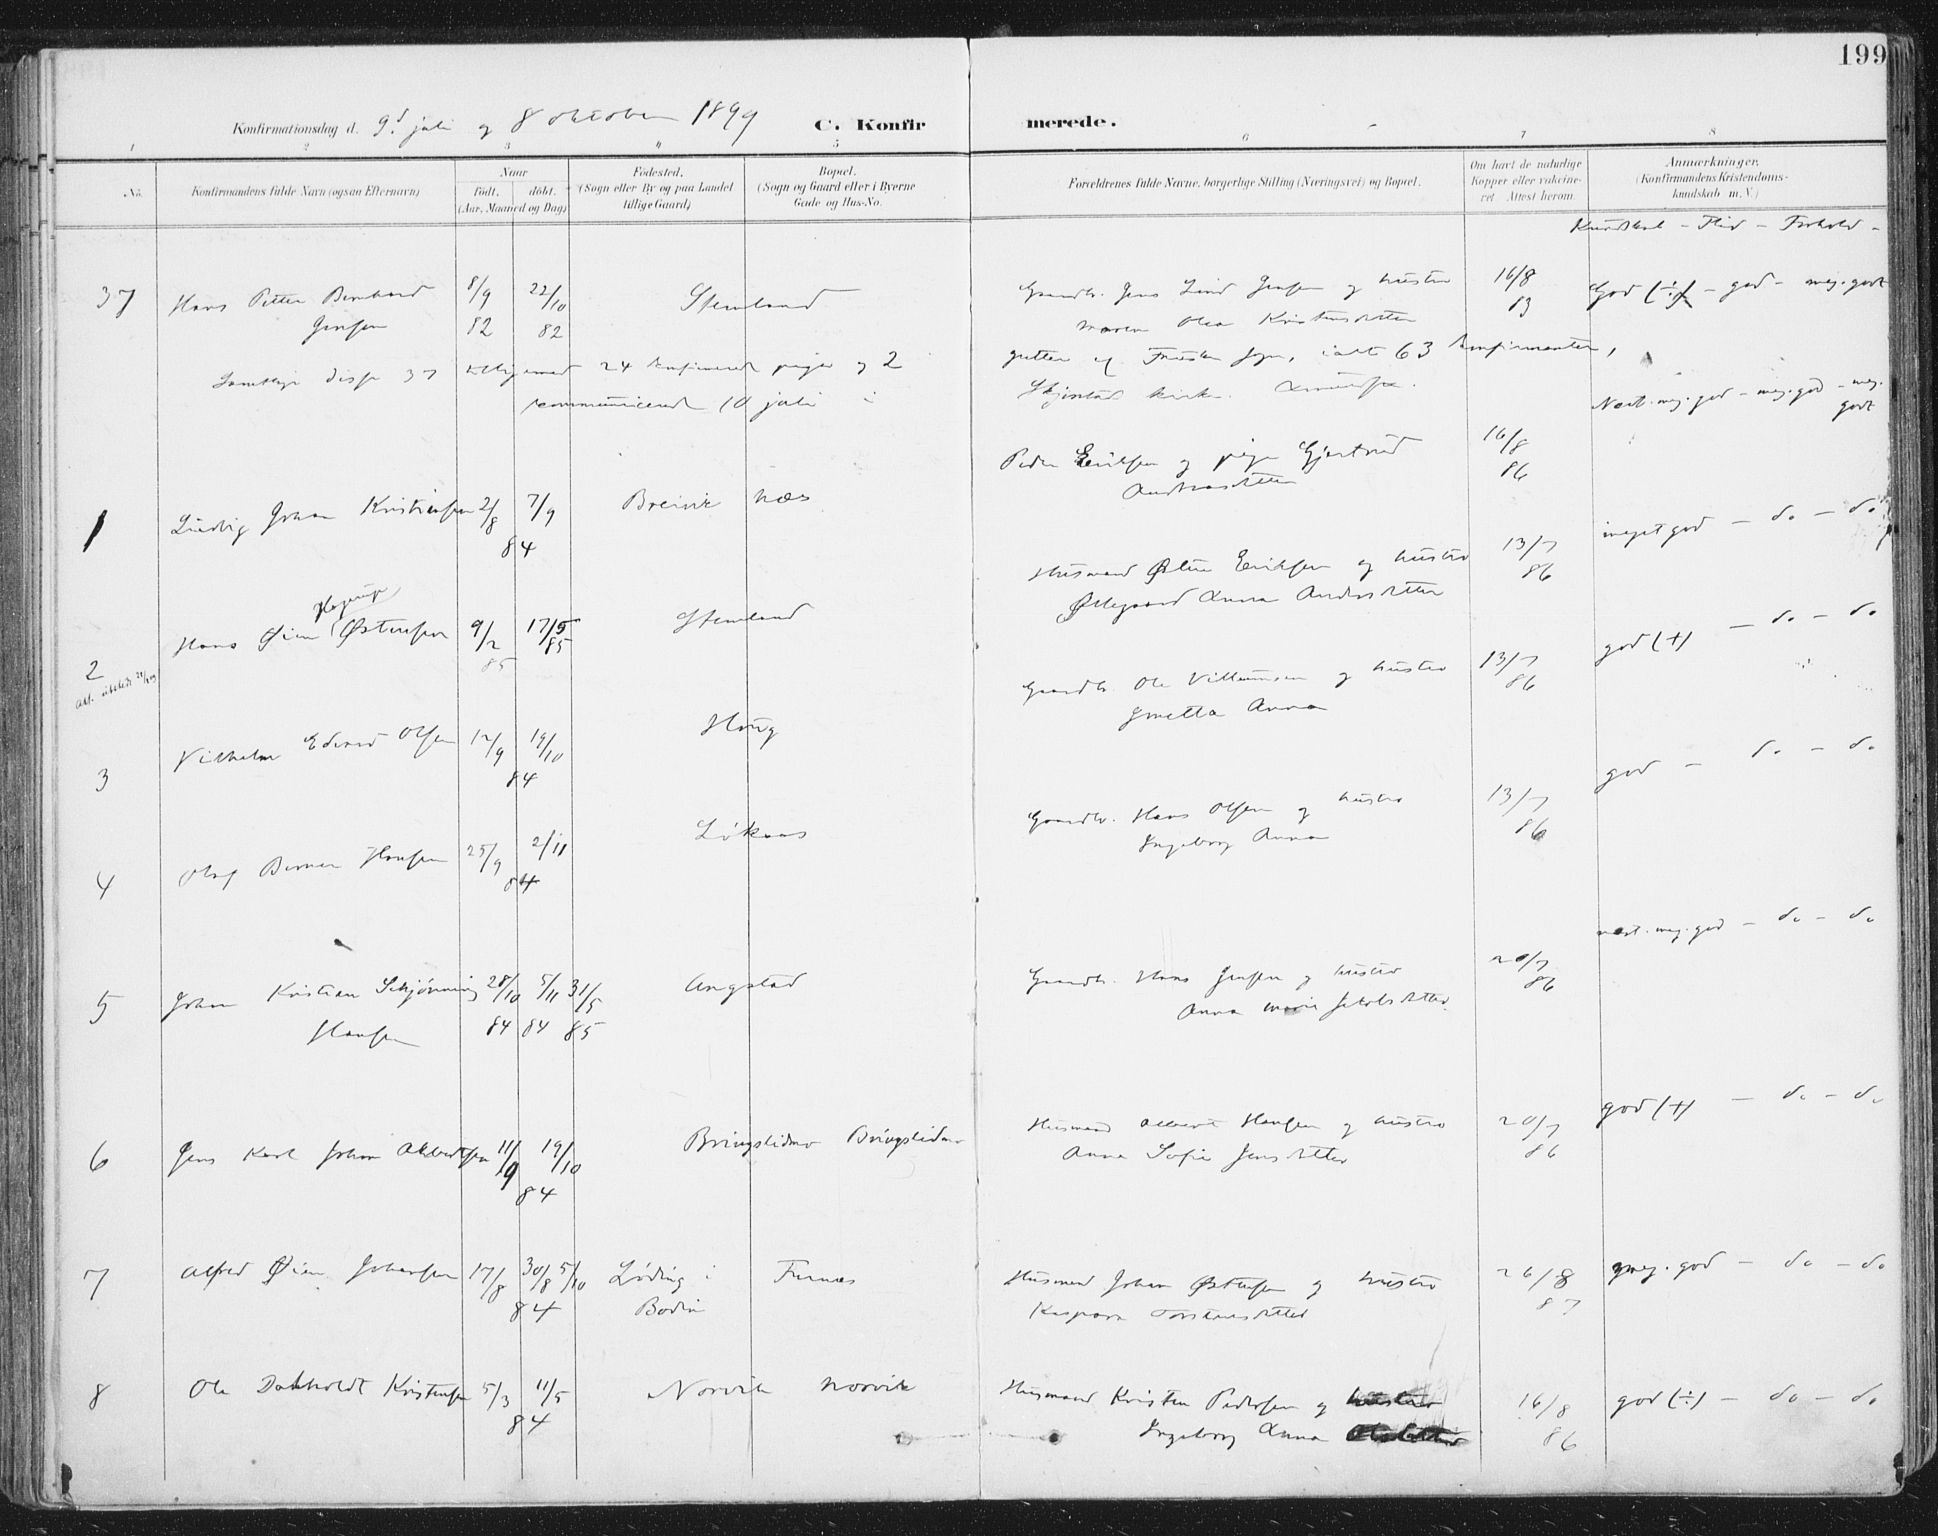 199
Konfirmationsdag d. 9d juli og 8 oktober 1899 C. Konfir merede.
1 2 3 4 5 6 7 8
No. Konfirmandens fulde Navn (ogsaa Efternavn) Naar født, døbt. (Aar, Maaned og Dag) Fødested. (Sogn eller By og paa Landet tillige Gaard) Bopæl. (Sogn og Gaard eller i Byerne Gade og Hus-No. Forældrenes fulde Navne, borgerlige Stilling (Næringsvei) og Bopæl. Om havt de naturlige Kopper eller vakcineret. Attest herom. Anmærkninger. (Konfirmandens Kristendomskundskab m. V.)
Kundskab - Flid - Forhold -
37 Hans Petter Bernhard 8/9 22/10 Stemland Gaardbr. Jens Lind Jensen og hustru 16/8 God (÷) - god - meg. godt
Jensen 82 82 Maren Olea Kristensdatter 83
Samtlige disse 37 tilligemed 24 konfirmerede piger og 2 gutter af sogn, ialt 63 konfirmanter,
kommunicerede 10 juli i Skjerstad kirke.
Nest. meg. god - meg. god - meg. godt
1 Ludvig Johan Kristensen 2/8 7/9 Breivik Næs Peder Eriksen og pige Gjertrud 16/8
84 Andreasdatter 86
meget god - do - do
2 Hans Øien Hagerup Østensen 9/2 17/5 Stemland Husmand Østen Eriksen og hustru 13/7
85 85 Ollegaard Anna Andersdatter 86
god (+) - do - do
3 Vilhelm Edvard Olsen 12/9 19/10 Haug Gaardbr. Ole Villumsen og hustru 13/7
84 Gjnetta Anna 86
god - do - do
4 Olaf Berner Hansen 25/9 2/11 Løkaas Gaardbr. Hans Olsen og hustru 13/7
84 Ingeborg Anna 86
nest. meg. god - do - do
5 Johan Kristian Schjønning 28/10 5/11 31/5 Angstad Gaardbr. Hans Jensen og hustru 20/7
Hansen 84 84 85 Anna Marie Jakobsdatter. 86
god (+) - do - do
6 Jens Karl Johan Albertsen 11/9 19/10 Bringslidmo Bringslidmo Husmand Albert Hansen og hustru 20/7
84 Anna Sofie Jensdatter 86
7 Alfred Øien Johansen 17/8 30/8 5/10 Løding i Furnes Husmand Johan Østensen og hustru 26/8 meg. god - do - do
84 Bodin Kaspara Torstensdatter 87
8 Ole Dokholdt Kristensen 5/3 11/5 Norvik Norvik Husmand Kristen Pedersen og hustru 16/8 god (÷) - do - do
84 Ingeborg Anna 86